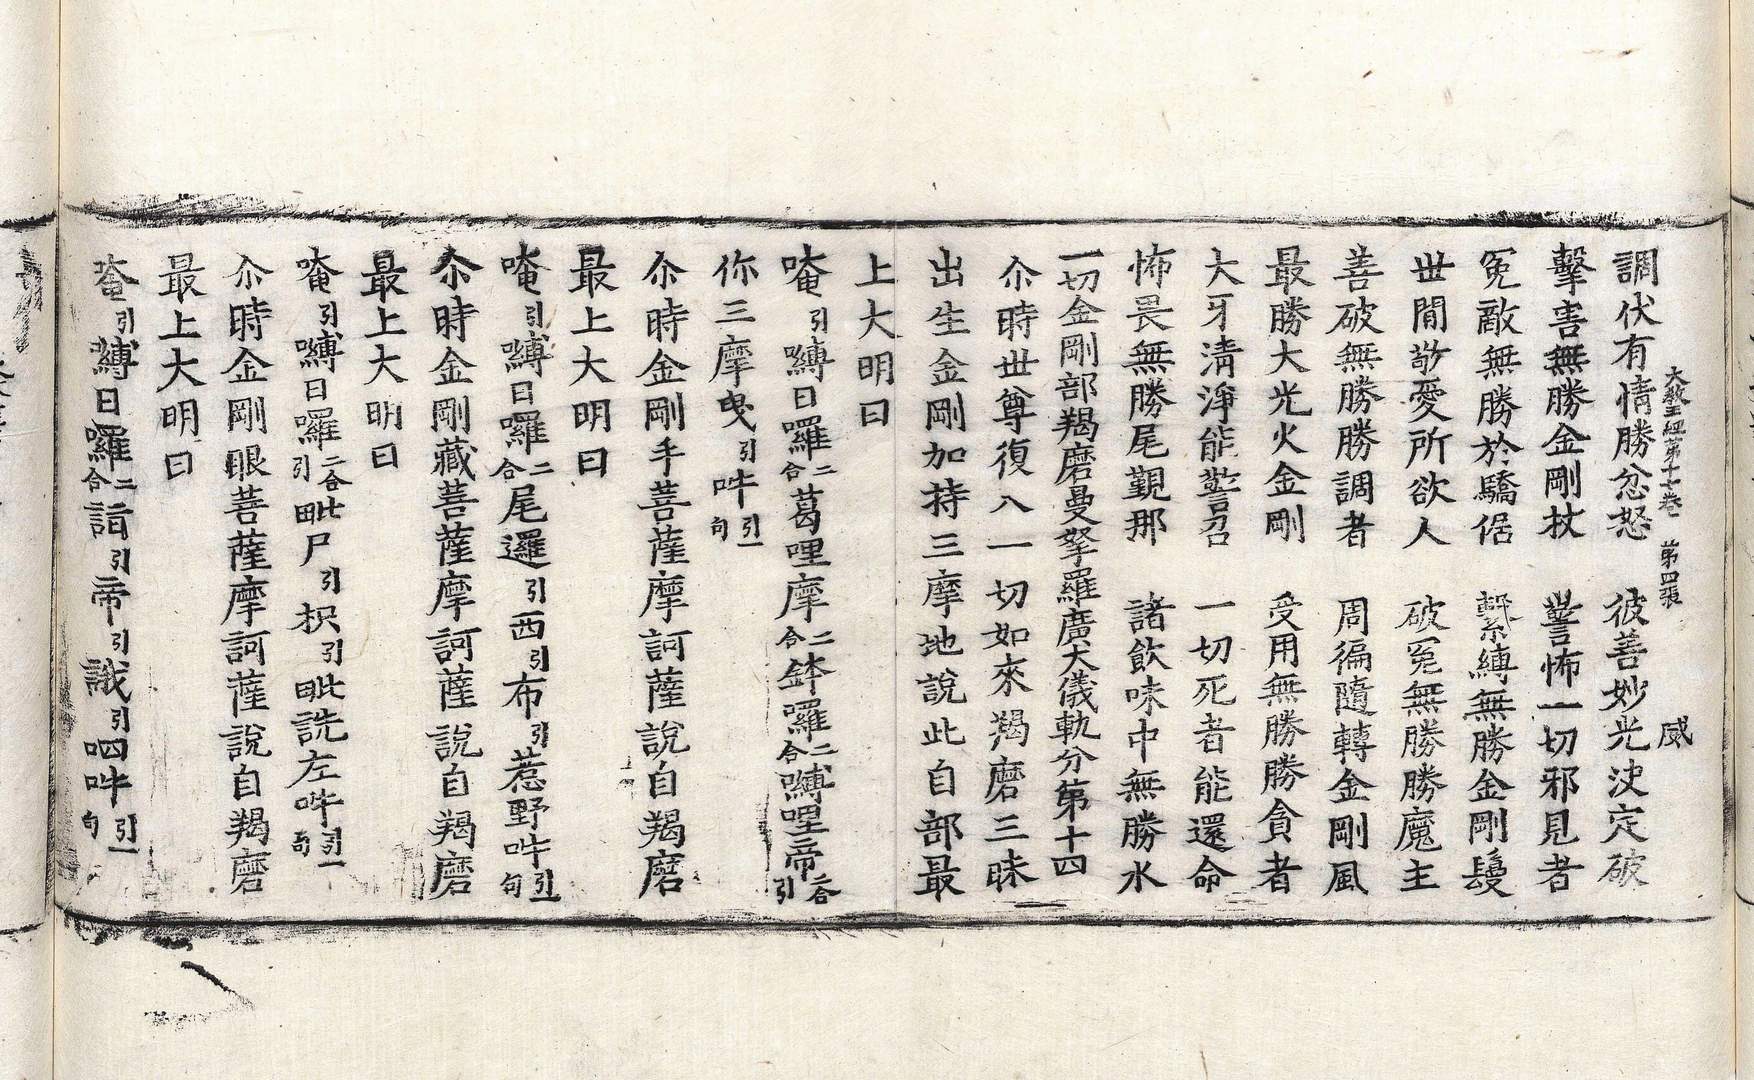 大敎王經第十七卷 第四張 威
調伏有情勝忿怒 彼善妙光決定破
擊害無勝金剛杖 警怖一切邪見者
冤敵無勝於驕倨 繫縛無勝金剛鬘
世間敬愛所欲人 破冤無勝勝魔主
善破無勝勝調者 周徧隨轉金剛風
最勝大光火金剛 受用無勝勝貪者
大牙淸淨能警召 一切死者能還命
怖畏無勝尾覲那 諸飮味中無勝水
一切金剛部羯磨曼拏羅廣大儀軌分第十四
尒時世尊復入一切如來羯磨三昧
出生金剛加持三摩地說此自部最
上大明曰
唵引嚩日囉二合葛哩摩二合鉢囉二合嚩哩帝二合引
你三摩曳引吽引一句
尒時金剛手菩薩摩訶薩說自羯磨
最上大明曰
唵引嚩日囉二合尾邏引西引布引惹野吽引一句
尒時金剛藏菩薩摩訶薩說自羯磨
最上大明曰
唵引嚩日囉二合引毗尸引枳引毗詵左吽引一句
尒時金剛眼菩薩摩訶薩說自羯磨
最上大明曰
唵引嚩日囉二合誐引帝引誐引呬吽引一句